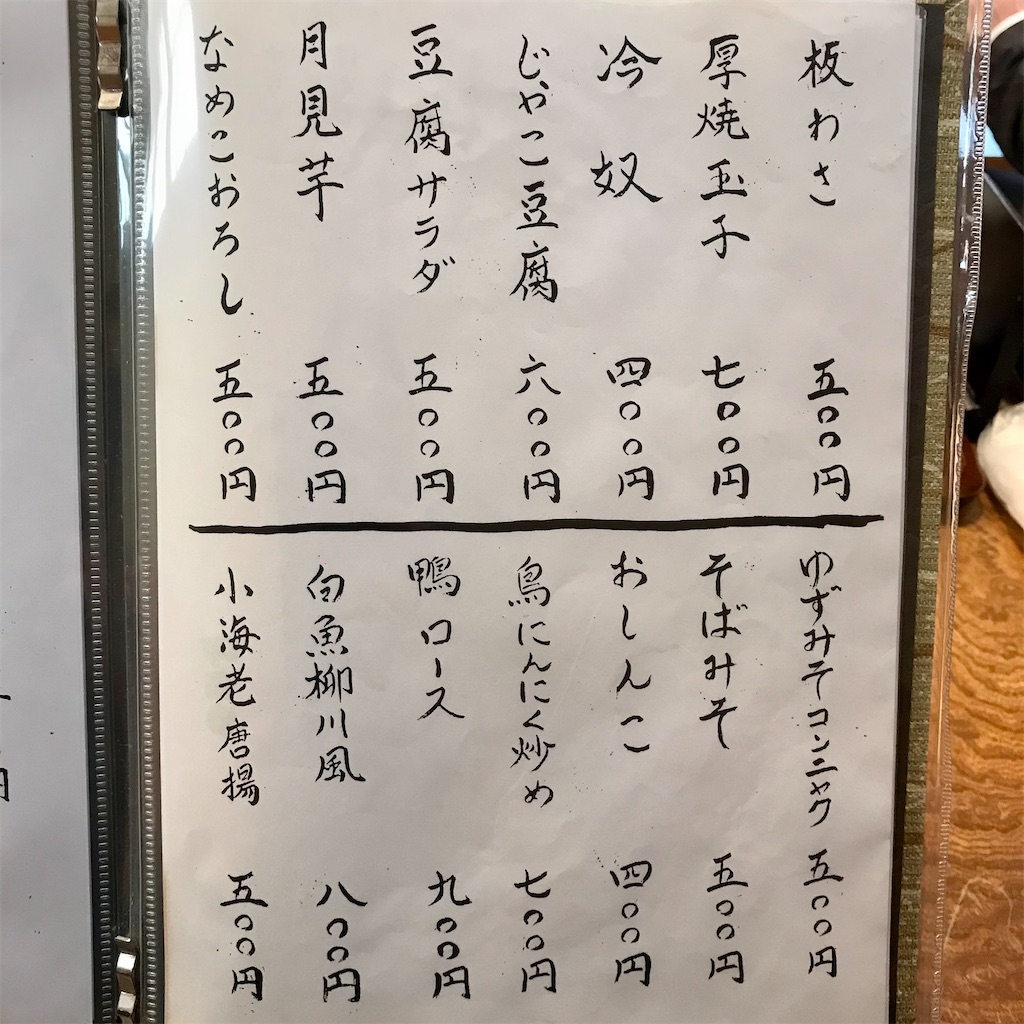 板わさ 五〇〇円
厚焼玉子 七〇〇円
冷奴 四〇〇円
じゃこ豆腐 六〇〇円
豆腐サラダ 五〇〇円
月見芋 五〇〇円
なめこおろし 五〇〇円
ゆずみそコンニャク 五〇〇円
そばみそ 五〇〇円
おしんこ 四〇〇円
鳥にんにく炒め 七〇〇円
鴨ロース 九〇〇円
白魚柳川風 八〇〇円
小海老唐揚 五〇〇円